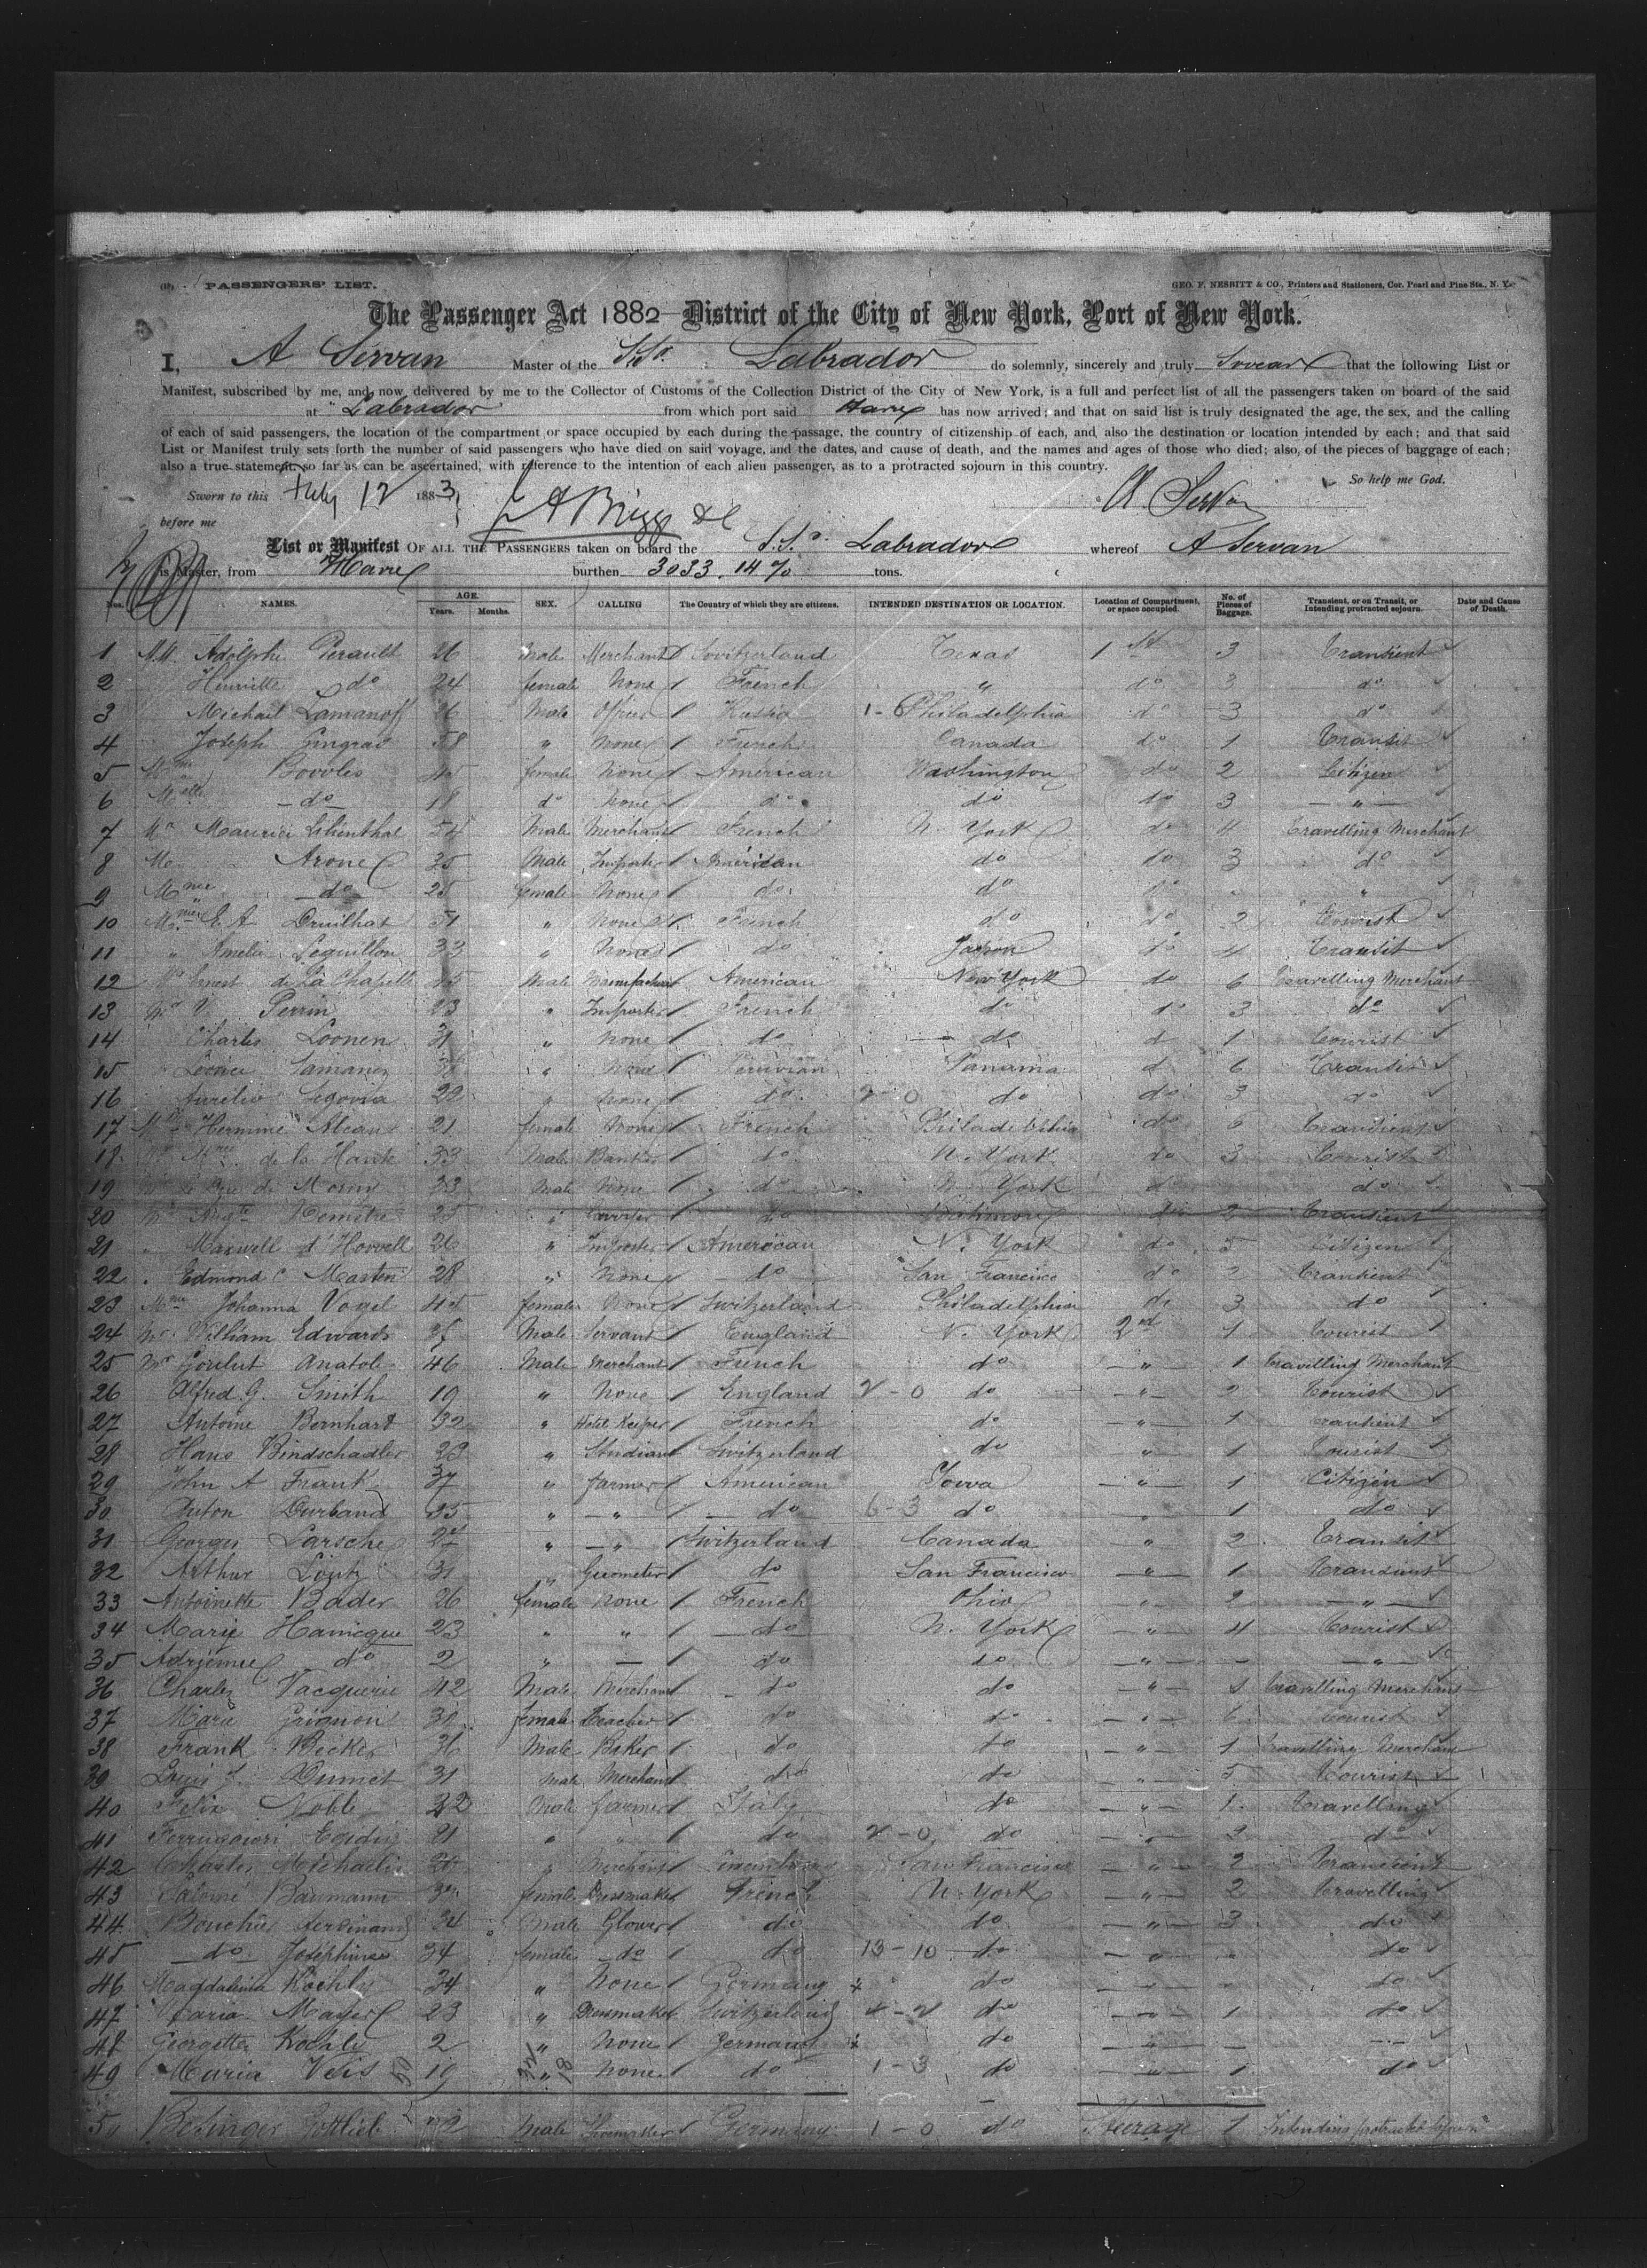 PASSENGERS' LIST.
GEO. F. NESBITT & CO., Printers and Stationers, Cor. Pearl and Pine Sts., N. Y.
The Passenger Act 1882 District of the City of New York, Port of New York.
I, A Servan Master of the S.S. Labrador do solemnly, sincerely and truly Swear that the following List or
Manifest, subscribed by me, and now delivered by me to the Collector of Customs of the Collection District of the City of New York, is a full and perfect list of all the passengers taken on board of the said
at Labrador from which port said Havre has now arrived; and that on said list is truly designated the age, the sex, and the calling
of each of said passengers, the location of the compartment or space occupied by each during the passage, the country of citizenship of each, and also the destination or location intended by each; and that said
List or Manifest truly sets forth the number of said passengers who have died on said voyage, and the dates, and cause of death, and the names and ages of those who died; also, of the pieces of baggage of each;
also a true statement, so far as can be ascertained, with reference to the intention of each alien passenger, as to a protracted sojourn in this country.
So help me God.
Sworn to this July 12 1883
before me
A Servan
List or Manifest OF ALL THE PASSENGERS taken on board the S.S. Labrador whereof A Servan
is Master, from Havre burthen 3033.14% tons.
Nos. NAMES. AGE. Years. Months. SEX. CALLING The Country of which they are citizens. INTENDED DESTINATION OR LOCATION. Location of Compartment, or space occupied. No. of Pieces of Baggage. Transient, or on Transit, or Intending protracted sojourn. Date and Cause of Death.
1 Adolphe Perault 26 Male Merchant Switzerland Texas 1 st 3 Transient
2 Henriette do 24 female None French " do 3 do
3 Michail Lamanoff 26 Male Officer Russia 1 - Philadelphia do 3 do
4 Joseph Gingras 58 " None French Canada do 1 Transit
5 Mme 45 female None American Washington do 2 Citizen
6 Melle do 18 do None do do do 3 "
7 Mr Maurice Lilienthal 54 Male Merchant French N. York do 4 Travelling Merchant
8 Mr Arone 35 Male Importer American do do 3 do
9 Mme do 25 female None do do do " "
10 E. A Druilhat 51 " None French do do 2 Tourist
11 " Amelie Lequillou 33 " None do Japon do 4 Transit
12 Mr Ernest de La Chapelle 45 Male Manufacturer American New York do 6 Travelling Merchant
13 Mr V Perrin 23 " Importer French do do 3 do
14 Charles Loonen 31 " None do do d 1 Tourist
15 Samanez " None Peruvian Panama d 6 Transit
16 Aurelio Segovia 22 " None do 2 - 0 do do 3 do
17 Hermine Alcan 21 female None French Philadelphia do 5 Transient
18 de la Hante 33 Male Banker do N. York do 3 Tourist
19 de Morny 23 Male None do N. York d do
20 Mr Augte 25 " do Baltimore do 2 Transient
21 " Maxwell d' Howell 26 " Importer American N. York do 5 Citizen
22 " Edmond C Masten 28 " None do San Francisco do 2 Transient
23 Mme Johanna Vogel 45 female None Switzerland Philadelphia do 3 do
24 Mr William Edwards Male Servant England N. York 2nd 1 Tourist
25 Mr Anatole 46 Male Merchant French do " 1 Travelling Merchant
26 Alfred G. Smith 19 " None England 2 - 0 do " 2 Tourist
27 Antoine Bernhart 32 " Hotel Keeper French do " 1 Transient
28 Hans Bindschadler 23 " Studiant Switzerland do " 1 Tourist
29 John A Frank 37 " farmer American Iowa " 1 Citizen
30 Anton Durband 35 " " do 6 - 3 do " 1 do
31 Georges Larsche " " Switzerland Canada " 2 Transit
32 Arthur Loutz 31 " Geometer do San Francisco " 1 Transient
33 Antoinette Bader 26 female None French Ohio " 2 "
34 Marie Hanicque 23 " " do N. York " 4 Tourist
35 do 2 " do do " "
36 Charles Vacquerie 42 Male Merchant do do " 1 Travelling Merchant
37 Marie Grignon female Teacher do do " 6 Tourist
38 Frank Becker 36 Male Baker do do " 1 Travelling Merchant
39 Louis J. Dumet 31 Male Merchant do do " 5 Tourist
40 Felix Noble 32 Male farmer Italy do " 1 Travelling
41 21 " " do 2 - 0 do " 2 do
42 Charles Michaelis " Merchant San Francisco " 2 Transient
43 Salomé Baumann female Dressmaker French N. York " 2 Travelling
44 Ferdinand 34 Male Glover do do " 3 do
45 do Joséphine 34 female do do 13 - 10 do " " do
46 Magdalena Koehly 24 " None Germany do " do
47 Maria Mayer 23 " Dressmaker Switzerland 4 - 2 do " 1 do
48 Georgette Koehly 2 " None Germany do "
49 Maria Veis 19 " None do 1 - 3 do " 1 do
50 Gottlieb Male Shoemaker Germany 1 - 0 do Steerage 1 Intending protracted sojourn